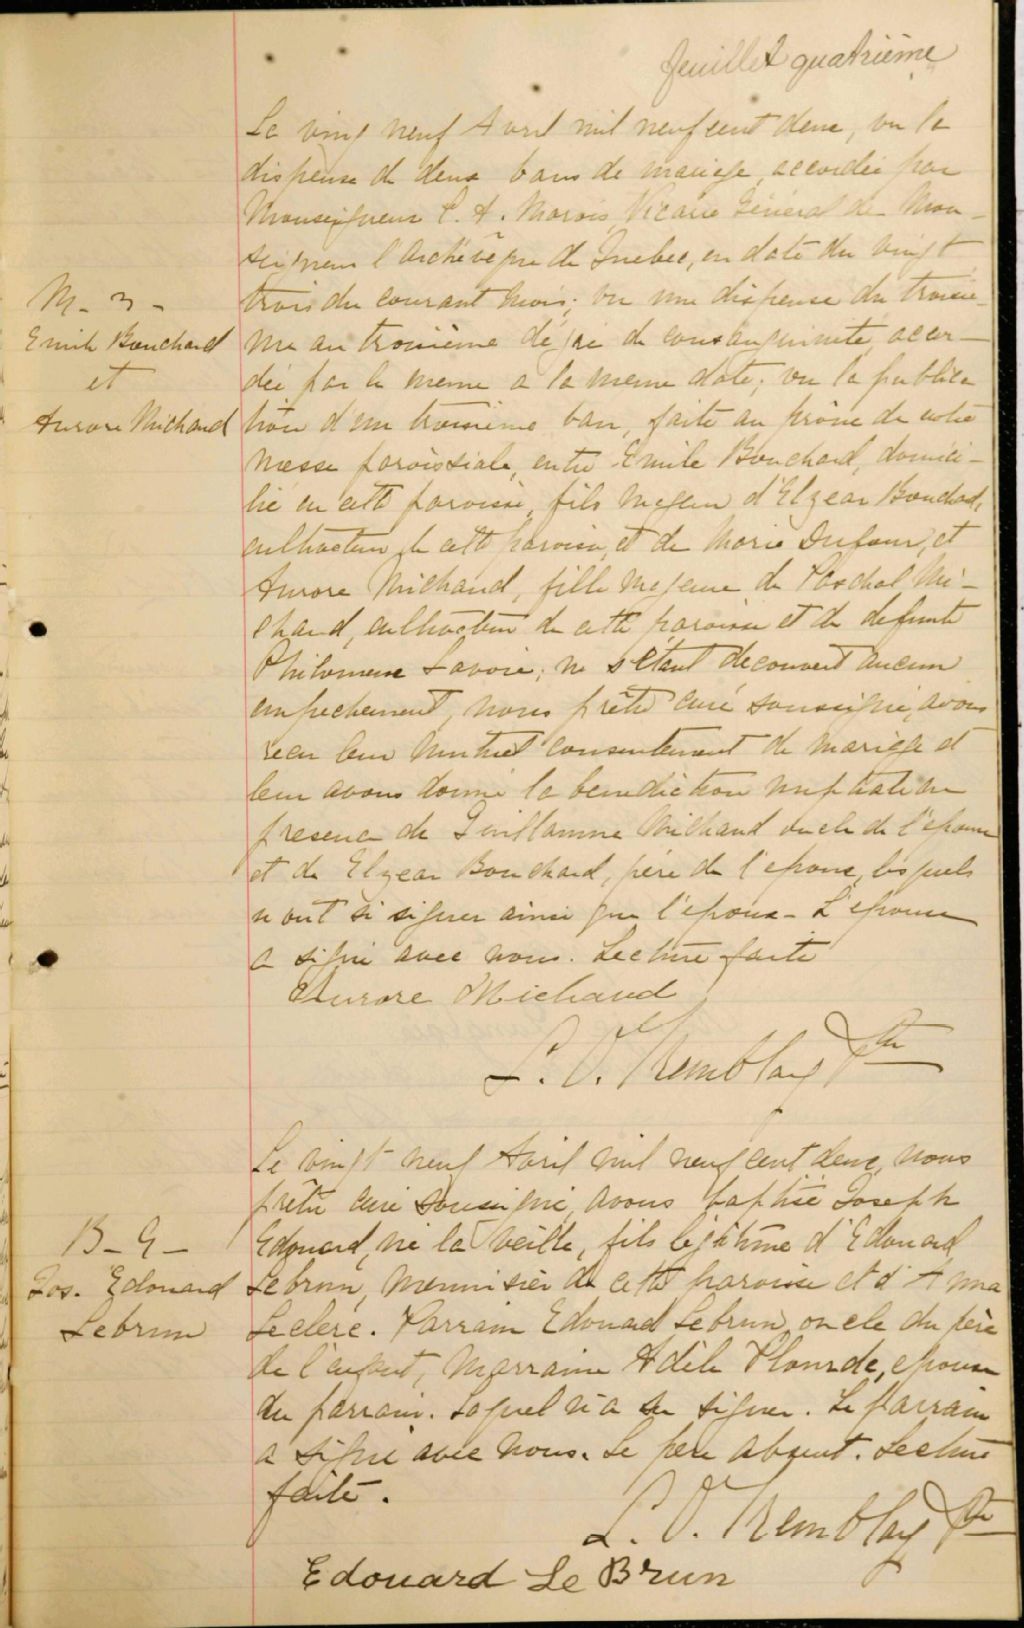 feuillet quatrième
Le vingt neuf Avril mil neuf cent deux, vu la
dispense de deux bans de mariage, accordée par
Monseigneur C. A. Marois, Vicaire Général de Mon-
seigneur l'Archévêque de Quebec, en date du vingt
trois du courant mois; vu une dispense du troisiè-
me au troisième dégré de consanguinité, accor-
dée par le meme a la meme date; vu la publica
tion d'un troisième ban, faite au prône de notre
messe paroissiale, entre Emile Bouchard, domici-
lié en cette paroisse, fils majeur d'Elzear Bouchard,
cultivateur de cette paroisse, et de Marie Dufour, et
Aurore Michaud, fille majeure de Paschal Mi-
chaud, cultivateur de cette paroisse et de defunte
Philomene Lavoie; ne s'étant decouvert aucun
empechement, nous prêtre curé soussigné, avons
recu leur mutuel consentement de mariage et
leur avons donné la benediction nuptiale en
presence de Guillaume Michaud oncle de l'epouse
et de Elzear Bouchard, père de l'epoux, lesquels
n'ont su signer ainsi que l'époux - L'épouse
a signé avec nous. Lecture faite
M_ 3 _
Emile Bouchard
et
Aurore Michaud
Aurore Michaud
L. V. Tremblay Ptre
Le vingt neuf Avril mil neuf cent deux, nous
prêtre curé soussigné, avons baptisé Joseph
Edouard, né la veille, fils légitime d'Edouard
Lebrun, menuisier de cette paroisse et d'Anna
Leclerc. Parrain Edouard Lebrun, oncle du père
de l'enfant, Marraine Adèle Plourde, epouse
du parrain. Laquel n'a su signer. Le parrain
a signé avec nous. Le père absent. Lecture
faite.
B_ 9_
Jos. Edouard
Lebrun
L. V. Tremblay Ptre
Edouard Le Brun